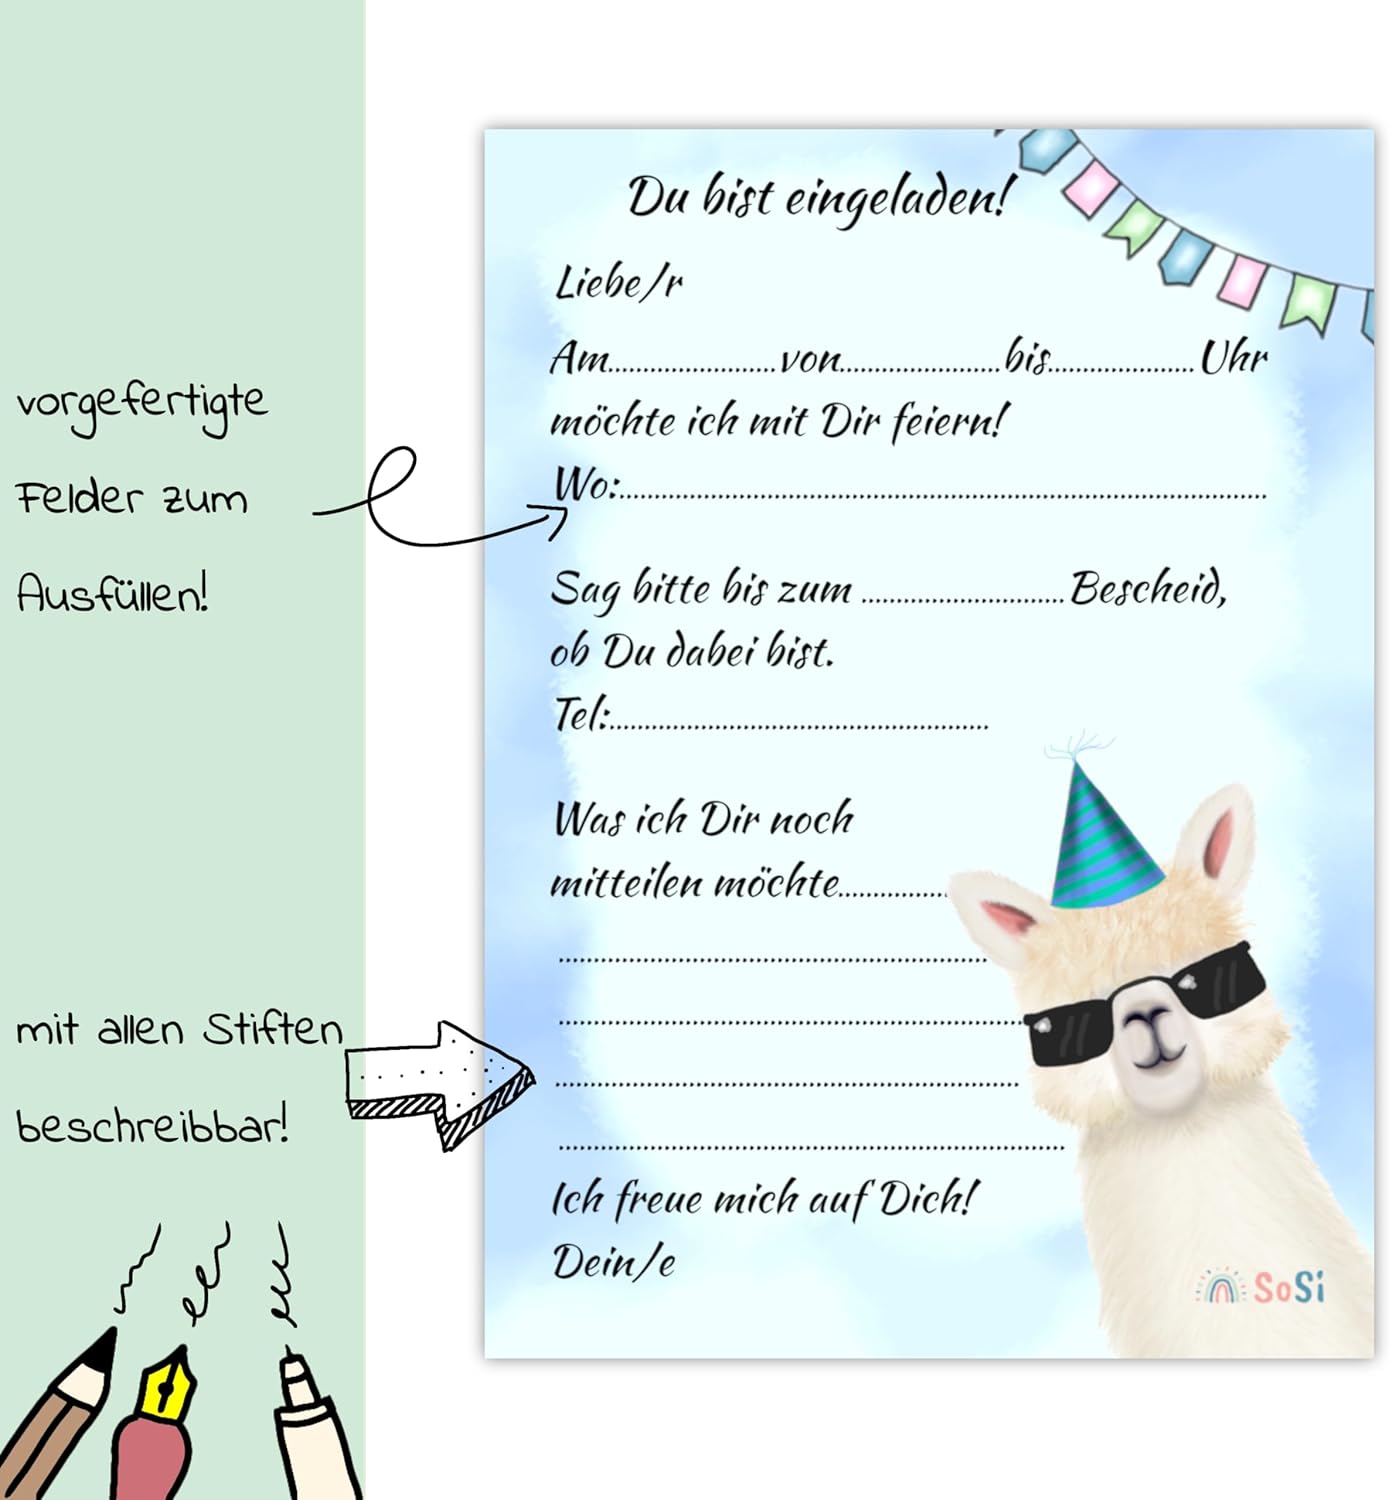 vorgefertigte
Felder zum
Ausfüllen!
mit allen Stiften
beschreibbar!
Du bist eingeladen!
Liebe/r
Am........................von.......................bis.....................Uhr
möchte ich mit Dir feiern!
Wo:............................................................................................
Sag bitte bis zum .............................Bescheid,
ob Du dabei bist.
Tel:......................................................
Was ich Dir noch
mitteilen möchte................
.............................................................
..................................................................
..................................................................
........................................................................
Ich freue mich auf Dich!
Dein/e
SoSi